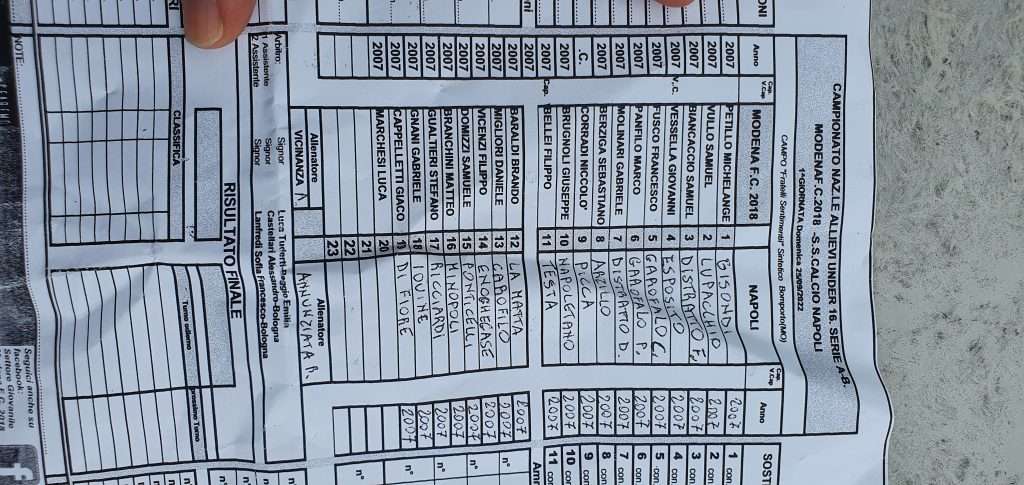 CAMPIONATO NAZ.LE ALLIEVI UNDER 16. SERIE A-B.
MODENAF.C.2018 -S.S.CALCIO NAPOLI
1^GIORNATA Domenica 25/09/2022
CAMPO "Fratelli Sentimenti" Sintetico Bomporto(MO)
Anno Cap. V.Cap MODENA F.C. 2018 NAPOLI Cap. V.Cap Anno SOST
2007 PETILLO MICHELANGE 1 BISONDI 2007 1 con
2007 VULLO SAMUEL 2 LUPACCHIO 2007 2 con
2007 BIANCACCIO SAMUEL 3 DISTRATTO F. 2007 3 con
2007 V.C. VESSELLA GIOVANNI 4 ESPOSITO 2007 4 con
2007 FUSCO FRANCESCO 5 GAROFALO C. 2007 5 con
2007 PANFILO MARCO 6 GAROFALO P. 2007 6 con
2007 MOLINARI GABRIELE 7 DISTRATTO D. 2007 7 con
2007 BERZIGA SEBASTIANO 8 ARZILLO 2007 8 con
.C. CORRADI NICCOLO' 9 PICCA 2007 9 con
2007 BRUGNOLI GIUSEPPE 10 NAPOLETANO 2007 10 con
2007 Cap. BELLEI FILIPPO 11 TESTA 2007 11 con
2007 BARALDI BRANDO 12 LA MARCA 2007 n°
2007 MIGLIORI DANIELE 13 CAROFILO 2007
2007 VICENZI FILIPPO 14 ENOGHEGASE 2007 n°
2007 DOMIZZI SAMUELE 15 PONTICELLI 2007
2007 BRANCHINI MATTEO 16 MINOPOLI 2007 n°
2007 GUALTIERI STEFANO 17 RICCIARDI 2007
2007 GNANI GABRIELE 18 IOVINE 2007 n°
2007 CAPPELLETTI GIACO 19 DI FIORE 2007
2007 MARCHESI LUCA 20
21
22
23
Allenatore Allenatore
VICINANZA A. ANNUNZIATA R.
Arbitro: Signor Luca Turlerti-Reggio Emilia
1 Assistente Signor Castellari Alessandro-Bologna
2 Assistente Signor Lanfredi Sofia Francesco-Bologna
RISULTATO FINALE
CLASSIFICA Turno odierno prossimo Turno
NOTE:
Seguici anche su
facebook:
Settore Giovanile